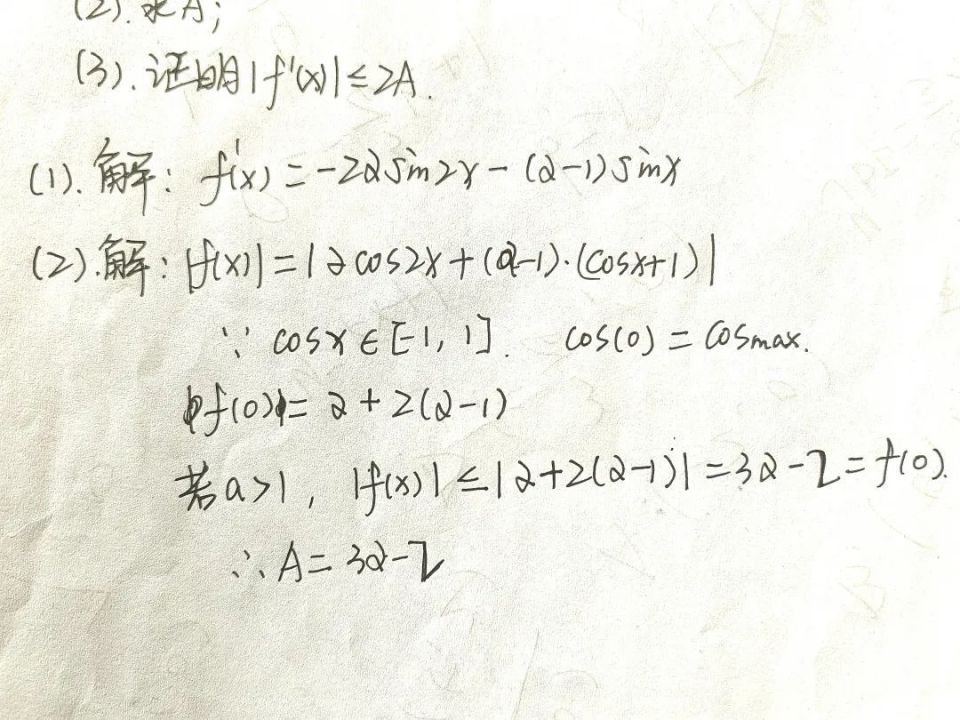 (2). 求A;
(3). 证明|f'(x)|≤2A.
(1). 解: f'(x)=-2αsin2x-(α-1)sinx
(2). 解: |f(x)|=|αcos2x+(α-1)·(cosx+1)|
∵ cosx∈[-1,1]. cos(0)=cosmax.
f(0)=α+2(α-1)
若a>1, |f(x)|≤|α+2(α-1)|=3α-2=f(0).
∴A=3α-2